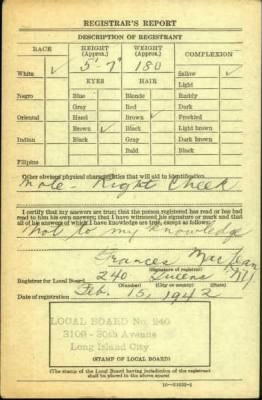 REGISTRAR'S REPORT
DESCRIPTION OF REGISTRANT
RACE HEIGHT (Approx.) WEIGHT (Approx.) COMPLEXION
White ✓ 5'-7" 180 Sallow ✓
EYES HAIR Light
Negro Blue Blonde Ruddy
Gray Red Dark
Oriental Hazel Brown ✓ Freckled
Brown ✓ Black Light brown
Indian Black Gray Dark brown
Bald Black
Filipino
Other obvious physical characteristics that will aid in identification
Mole - Right Cheek
I certify that my answers are true; that the person registered has read or has had
read to him his own answers; that I have witnessed his signature or mark and that
all of his answers of which I have knowledge are true, except as follows:
Not to my knowledge
Frances
(Signature of registrar)
Registrar for Local Board 240 Queens NY
(Number) (City or county) (State)
Date of registration Feb. 15, 1942
LOCAL BOARD No. 240
3109 - 30th Avenue
Long Island City
(STAMP OF LOCAL BOARD)
(The stamp of the Local Board having jurisdiction of the registrant
shall be placed in the above space.)